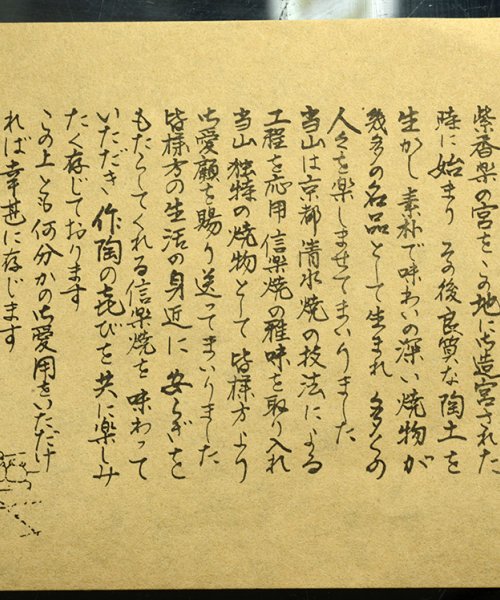 紫香楽の宮をこの地に御造宮された
時に始まり その後良質な陶土を
生かし 素朴で味わいの深い焼物が
幾多の名品として生まれ 多くの
人々を楽しませてまいりました
当山は京都清水焼の技法による
工程を応用 信楽焼の雅味を取り入れ
当山独特の焼物として 皆様方より
御愛顧を賜り送ってまいりました
皆様方の生活の身近に 安らぎを
もたらしてくれる信楽焼を 味わって
いただき 作陶の喜びを 共に楽しみ
たく存じております
この上とも何分かの御愛用をいただけ
れば幸甚に存じます